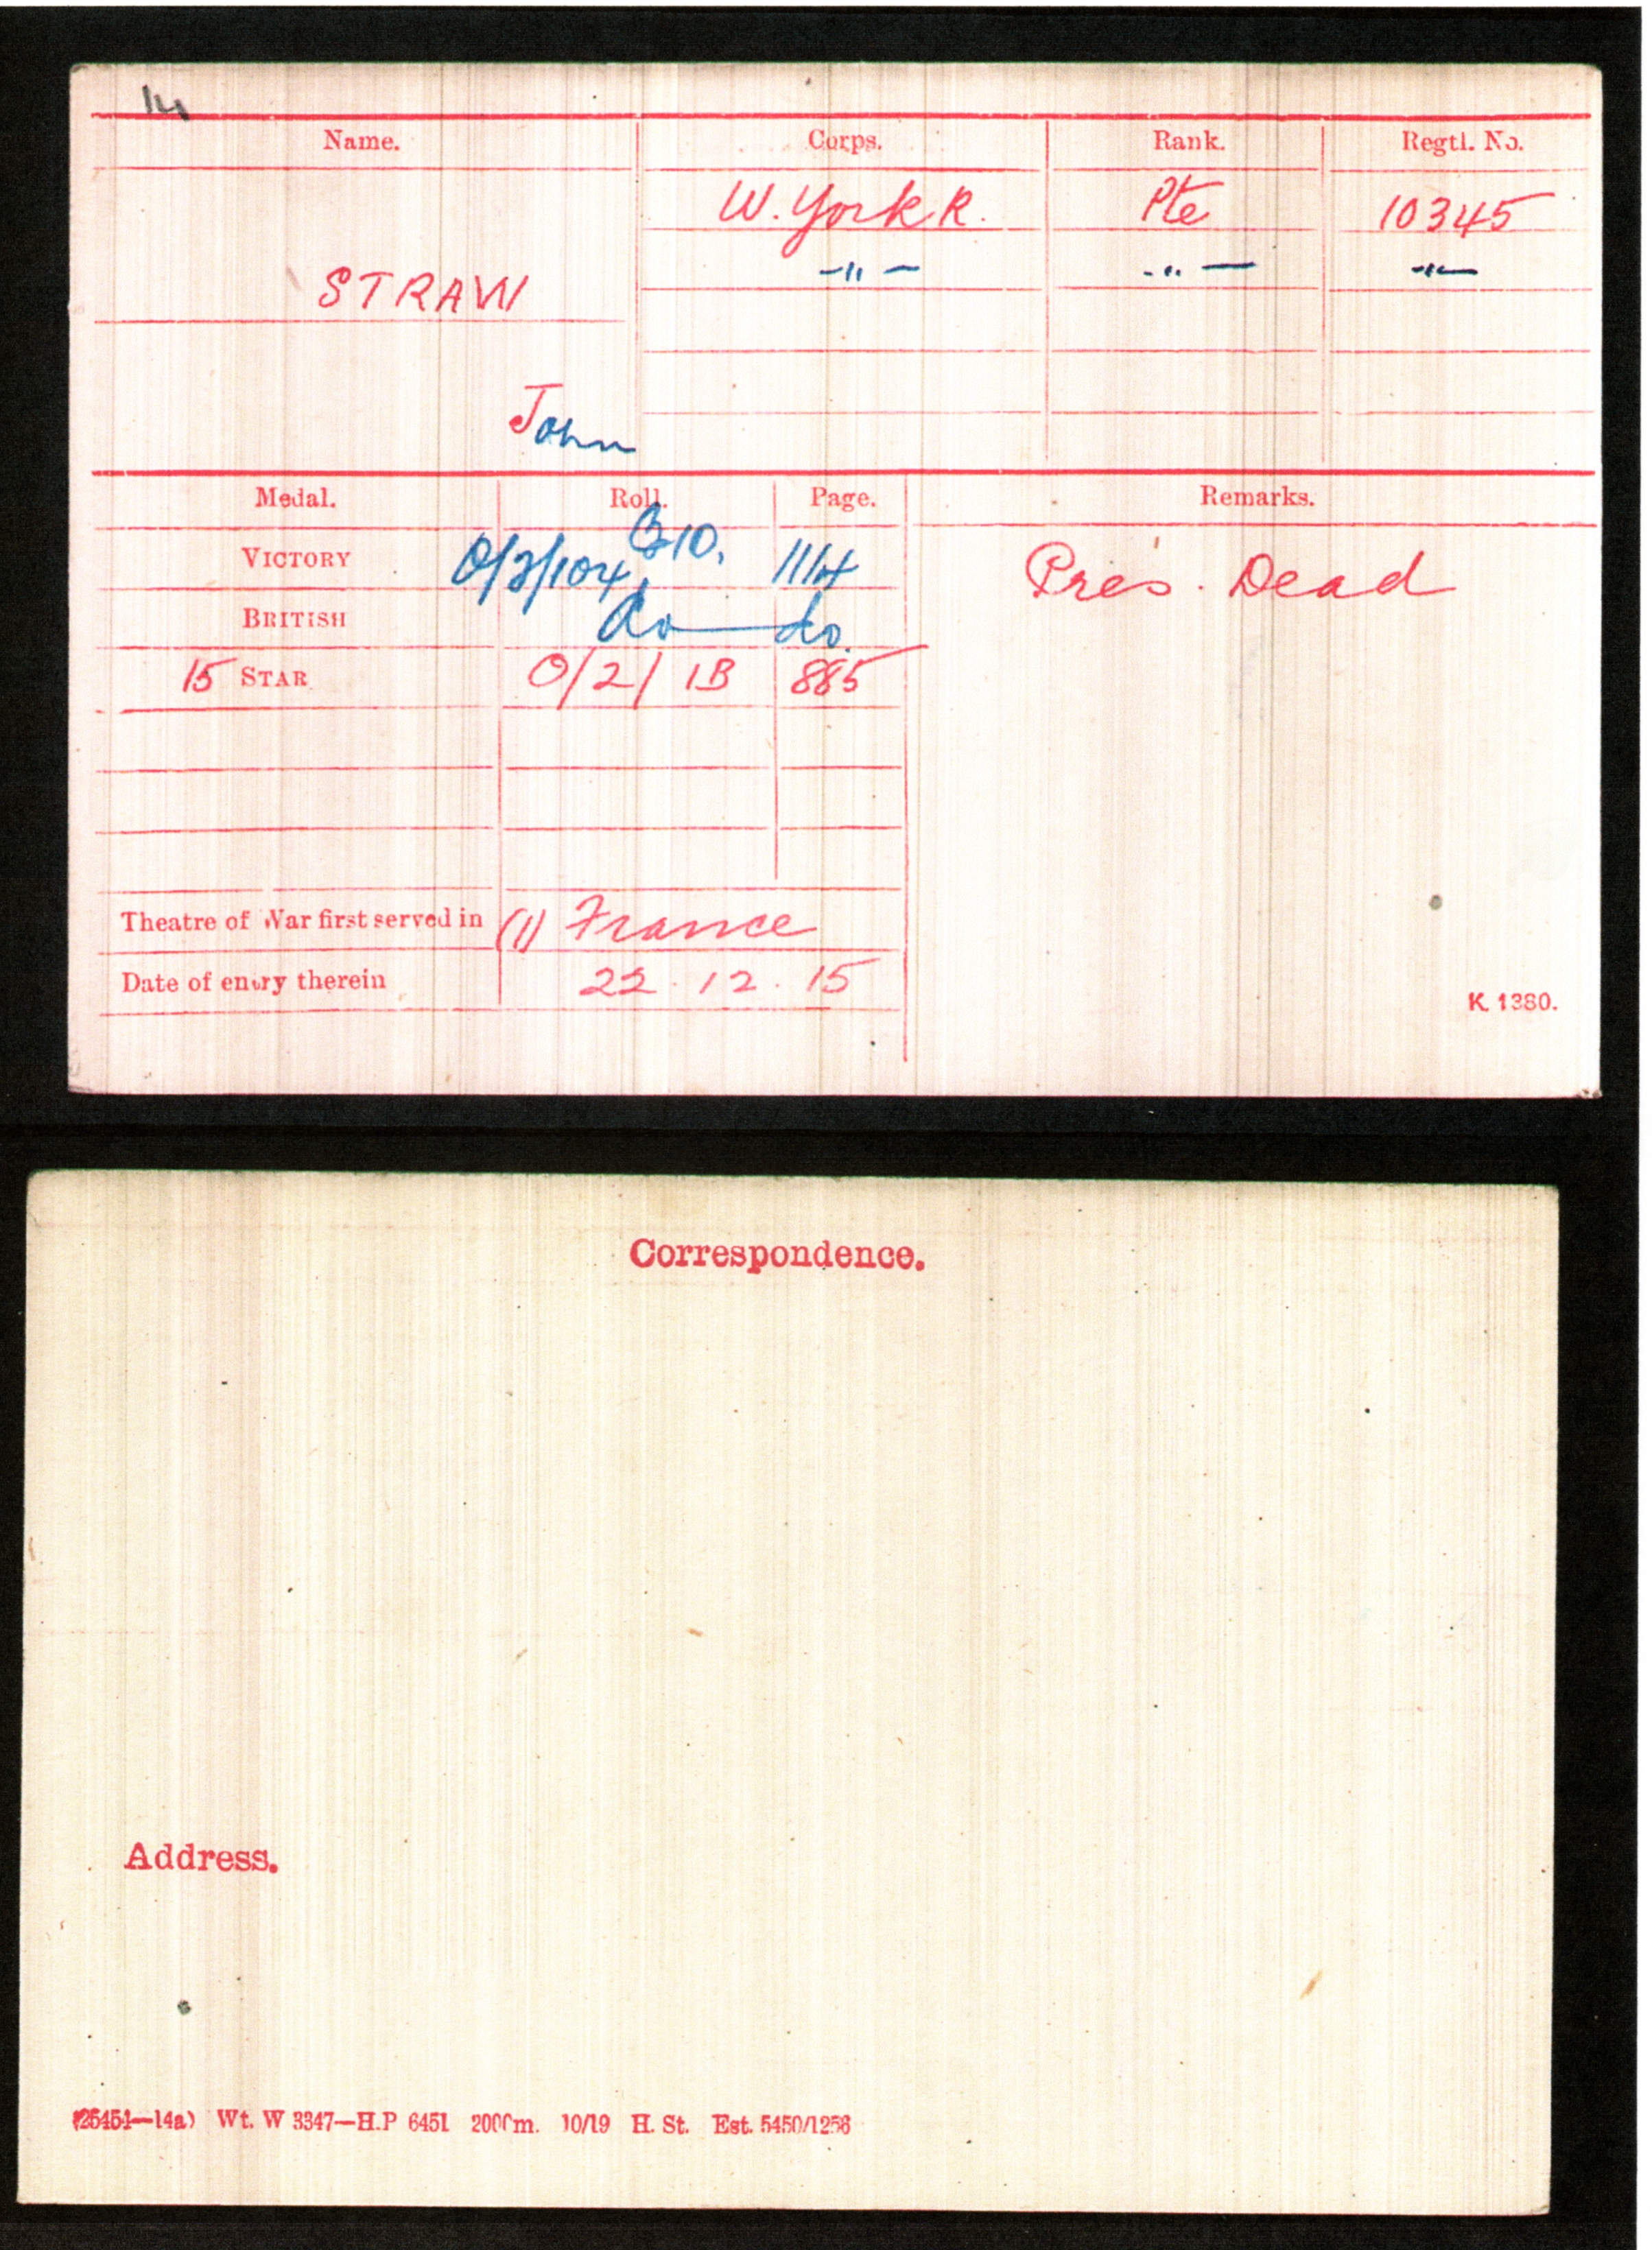 14
Name. Corps. Rank. Regtl. No.
W. York R. Pte 10345
-"- -"- -"-
STRAW
John
Medal. Roll. Page. Remarks.
VICTORY O/2/104 B10. 1114 Pres. Dead
BRITISH do do.
15 STAR O/2/1B 885
Theatre of War first served in (1) France
Date of entry therein 22.12.15
K. 1380.
Correspondence.
Address.
(25454—14a) Wt. W 3347—H.P 6451 2000m. 10/19 H. St. Est. 5450/1256